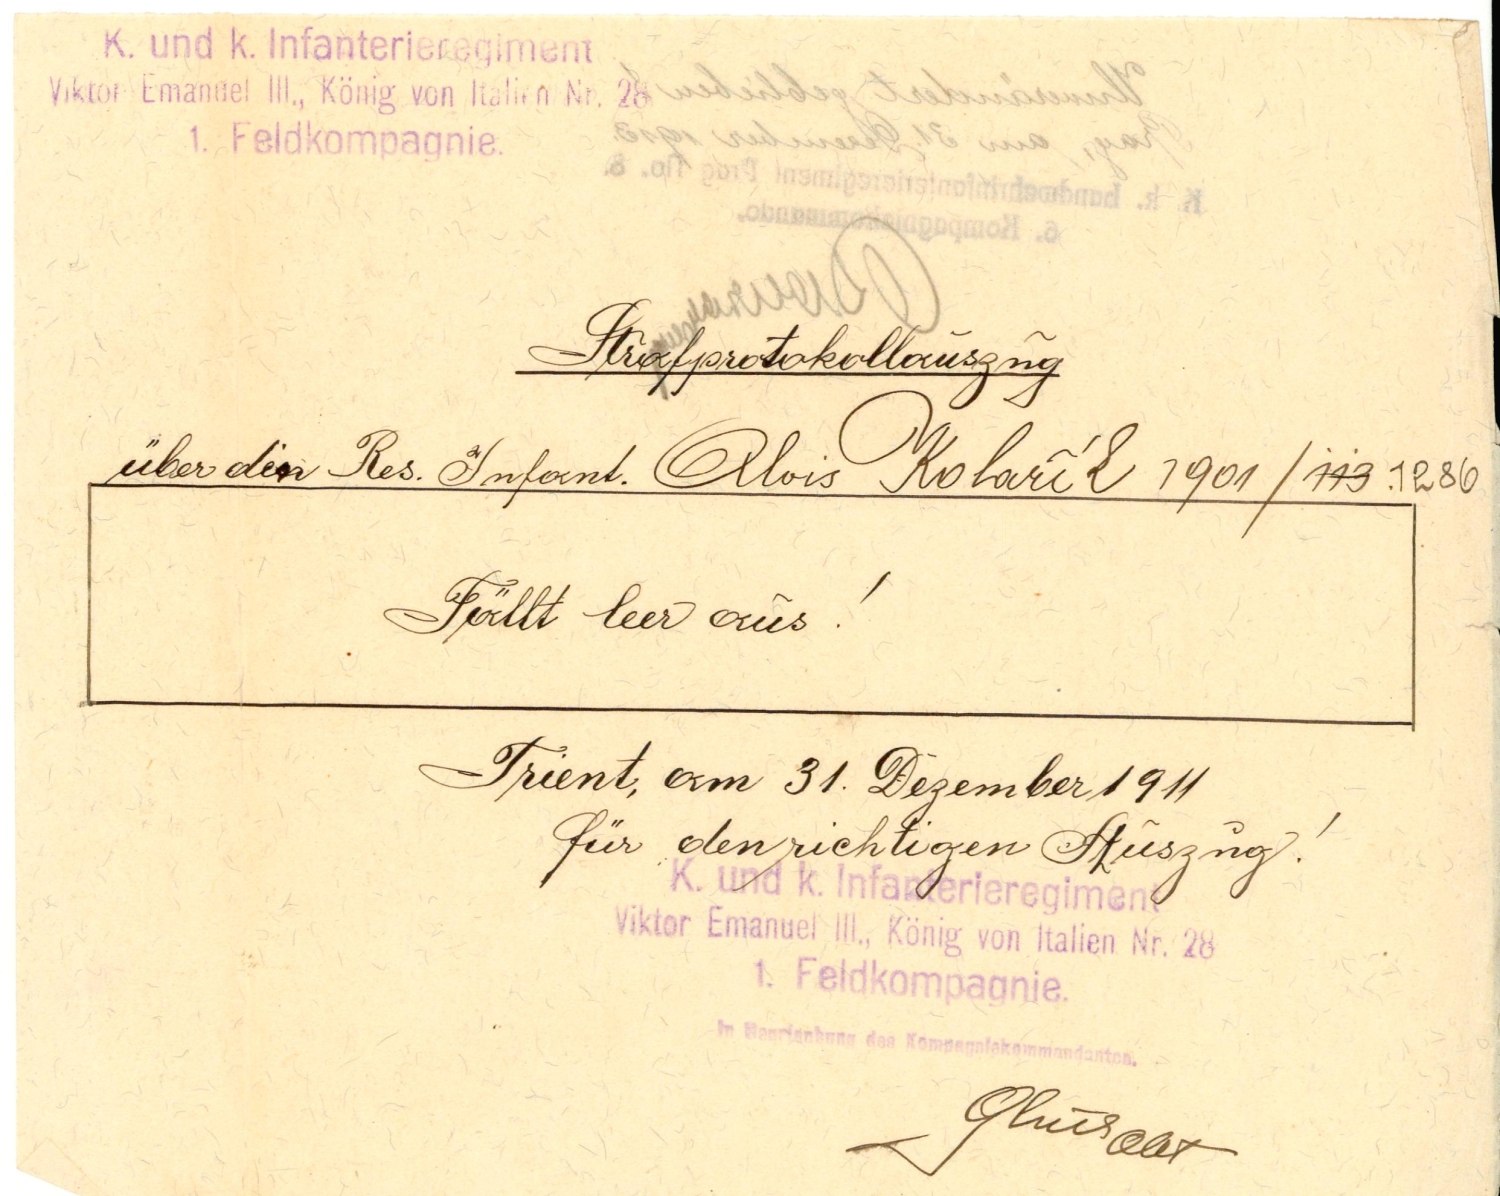 K. und k. Infanterieregiment
Viktor Emanuel III., König von Italien Nr. 28
1. Feldkompagnie.
Unverändert geblieben
Prag, am 31. Dezember 1912
K. k. Landwehrinfanterieregiment Prag No. 8.
6. Kompagniekommando.
Strafprotokollauszug
über den Res. Infant. Alois Kolařík 1901/113 1286
Fällt leer aus!
Trient, am 31. Dezember 1911
für den richtigen Auszug!
K. und k. Infanterieregiment
Viktor Emanuel III., König von Italien Nr. 28
1. Feldkompagnie.
In des Kompagniekommandanten.